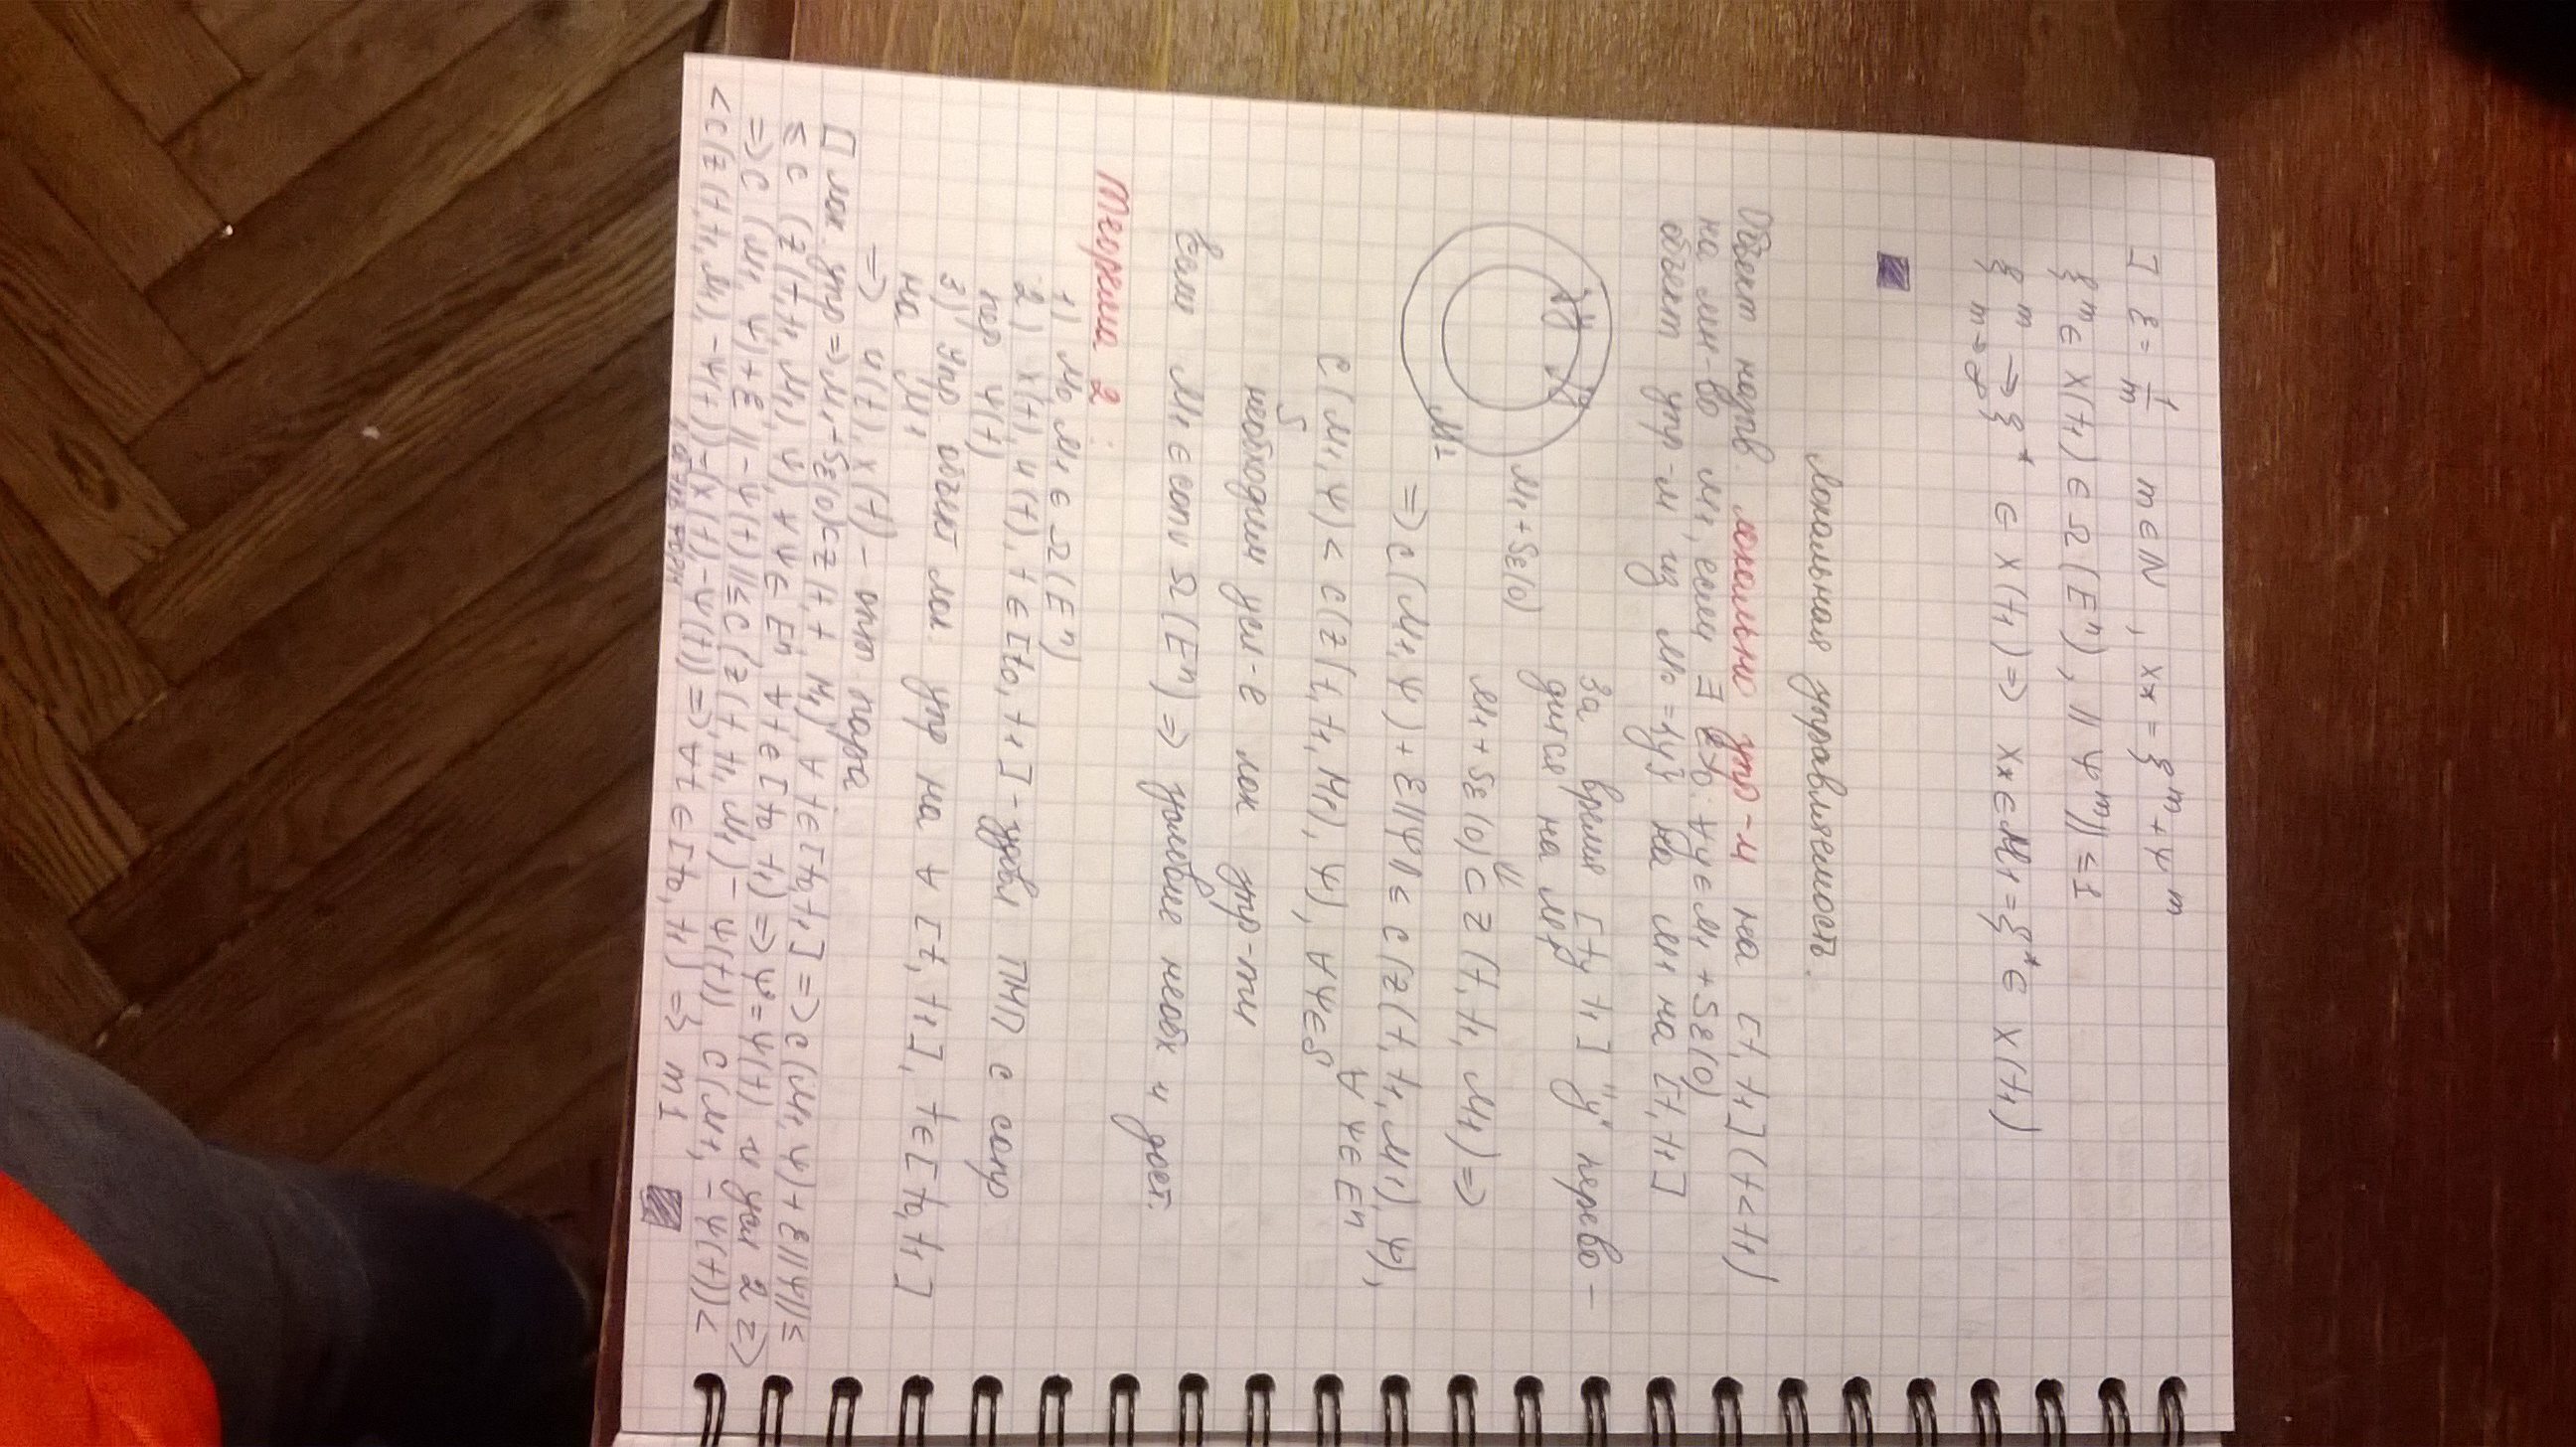 ] ε = 1/m   m ∈ N, x* = ξ^m + ψ^m
ξ^m ∈ X(t1) ∈ Ω(E^n), ||ψ^m|| ≤ 1
ξ^m ⇒ ξ* ∈ X(t1) => x* ∈ M1 = ξ* ∈ X(t1)
m→∞
Локальная управляемость.
Объект назв. локально упр-м на [t, t1] (t < t1)
на мн-во M1, если ∃ ε>0: ∀ y ∈ M1 + Sε(0)
объект упр-м из M0 = {y} на мн M1 на [t, t1]
За время [ty t1] "y" перево-
дится на M1
M1 + Sε(0)
M1
M1 + Sε(0) ⊂ Z(t, t1, M1) =>
=> c(M1, ψ) + ε||ψ|| ≤ c(Z(t, t1, M1), ψ),
∀ ψ ∈ E^n
c(M1, ψ) < c(Z(t, t1, M1), ψ), ∀ψ∈S
необходим усл-е лок упр-ти
Если M1 ∈ conv Ω(E^n) => условие необх и дост.
Теорема 2:
1) M0, M1 ∈ Ω(E^n)
2) x(t), u(t), t ∈ [t0, t1] - удовл ПМП с сопр
пер ψ(t)
3) упр. объект лок. упр на ∀ [t, t1], t ∈ [t0, t1]
на M1
=> u(t), x(t) - опт. пара
[] лок. упр => M1 + Sε(0) ⊂ Z(t, t1, M1), ∀ t ∈ [t0, t1] => c(M1, ψ) + ε||ψ|| ≤
≤ c(Z(t, t1, M1), ψ), ∀ ψ ∈ E^n ∀ t ∈ [t0, t1) => ψ = ψ(t) и усл 2 =>
=> c(M1, ψ) + ε||-ψ(t)|| ≤ c(Z(t, t1, M1) - ψ(t)), c(M1, -ψ(t)) <
< c(Z(t, t1, M1), -ψ(t)) = (x(t), -ψ(t)) => ∀ t ∈ [t0, t1) => m1